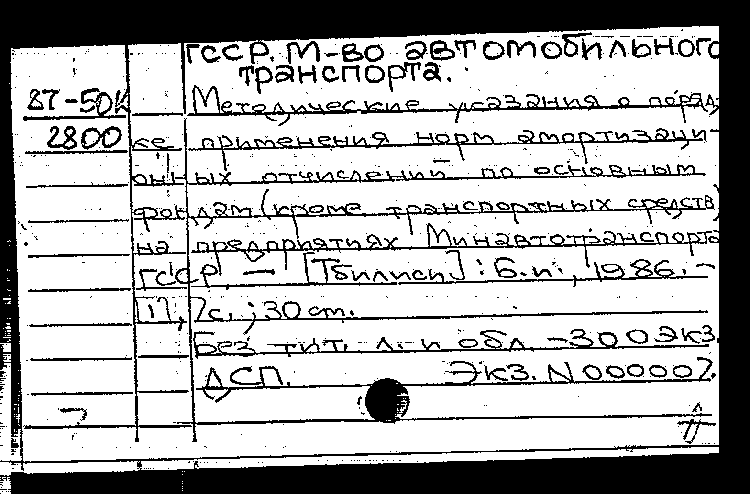 ГССР. М-во автомобильного
транспорта.
87-50К Методические указания о поряд-
2800 ке применения норм амортизаци-
онных отчислений по основным
фондам (кроме транспортных средств)
на предприятиях Минавтотранспорта
ГССР. — [Тбилиси] : Б.и., 1986. –
[1], 7с. ; 30 см.
Без тит. л. и обл. – 300 экз.
ДСП. Экз. N 000007.